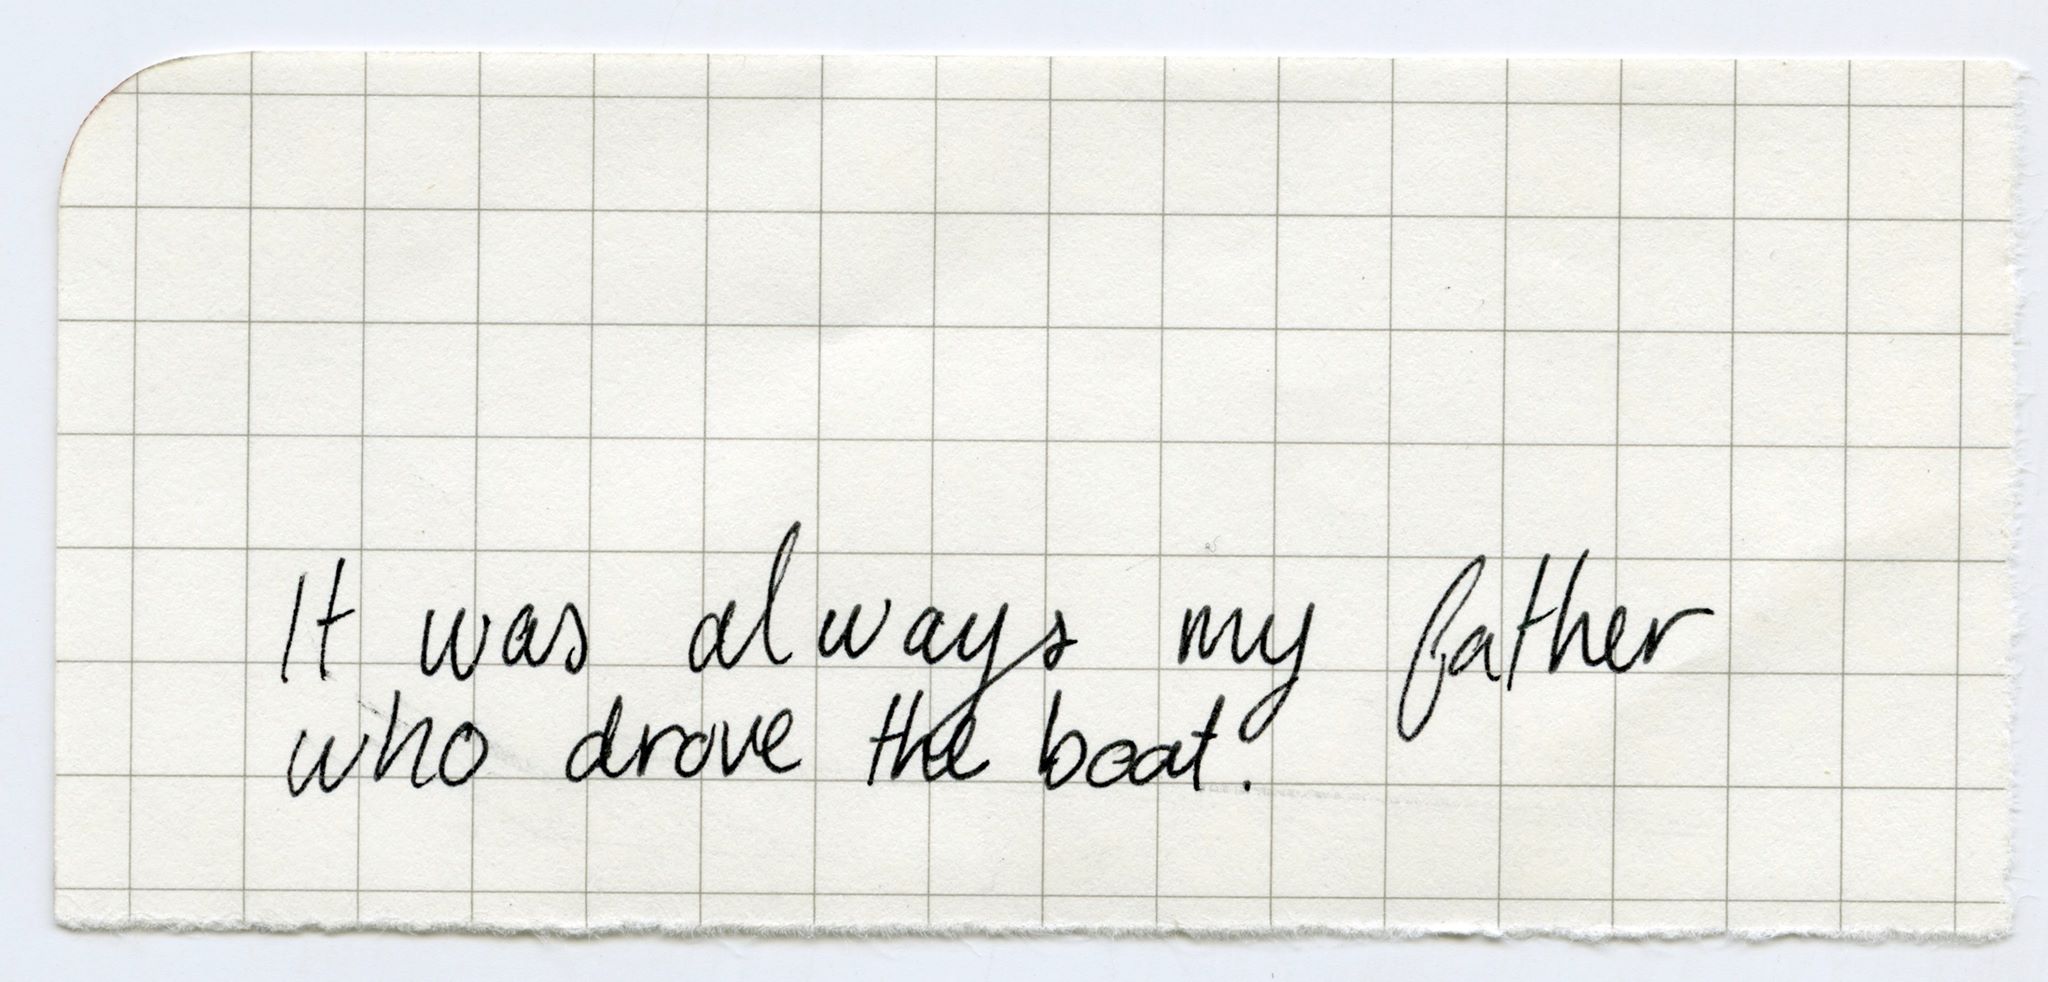 It was always my father
who drove the boat.